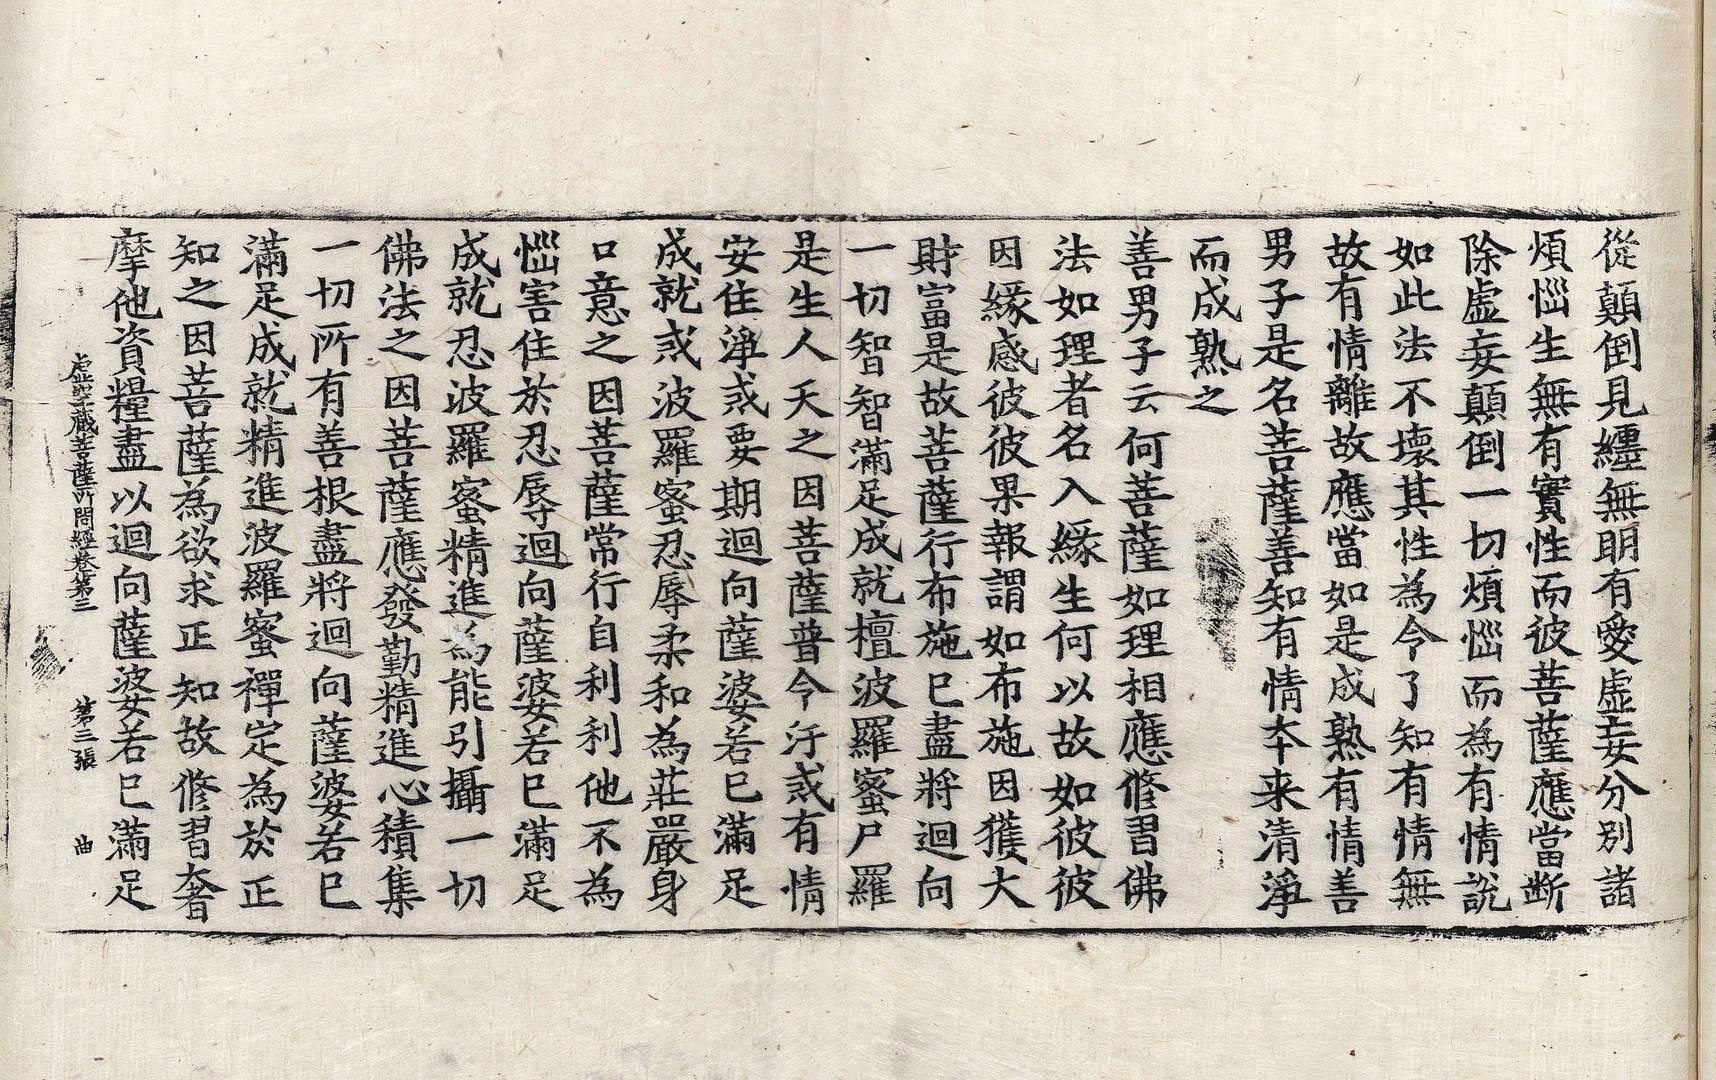 從顛倒見纏無明有愛虛妄分別諸
煩惱生無有實性而彼菩薩應當断
除虛妄顛倒一切煩惱而為有情說
如此法不壞其性為令了知有情無
故有情離故應當如是成熟有情善
男子是名菩薩善知有情本来清淨
而成熟之
善男子云何菩薩如理相應修習佛
法如理者名入緣生何以故如彼彼
因緣感彼彼果報謂如布施因獲大
財富是故菩薩行布施已盡將迴向
一切智智滿足成就檀波羅蜜尸羅
是生人天之因菩薩普令汙戒有情
安住淨戒要期迴向薩婆若已滿足
成就戒波羅蜜忍辱柔和為莊嚴身
口意之因菩薩常行自利利他不為
惱害住於忍辱迴向薩婆若已滿足
成就忍波羅蜜精進為能引攝一切
佛法之因菩薩應發勤精進心積集
一切所有善根盡將迴向薩婆若已
滿足成就精進波羅蜜禪定為於正
知之因菩薩為欲求正知故修習奢
摩他資糧盡以迴向薩婆若已滿足
虛空藏菩薩所問經卷第三 第三張 曲